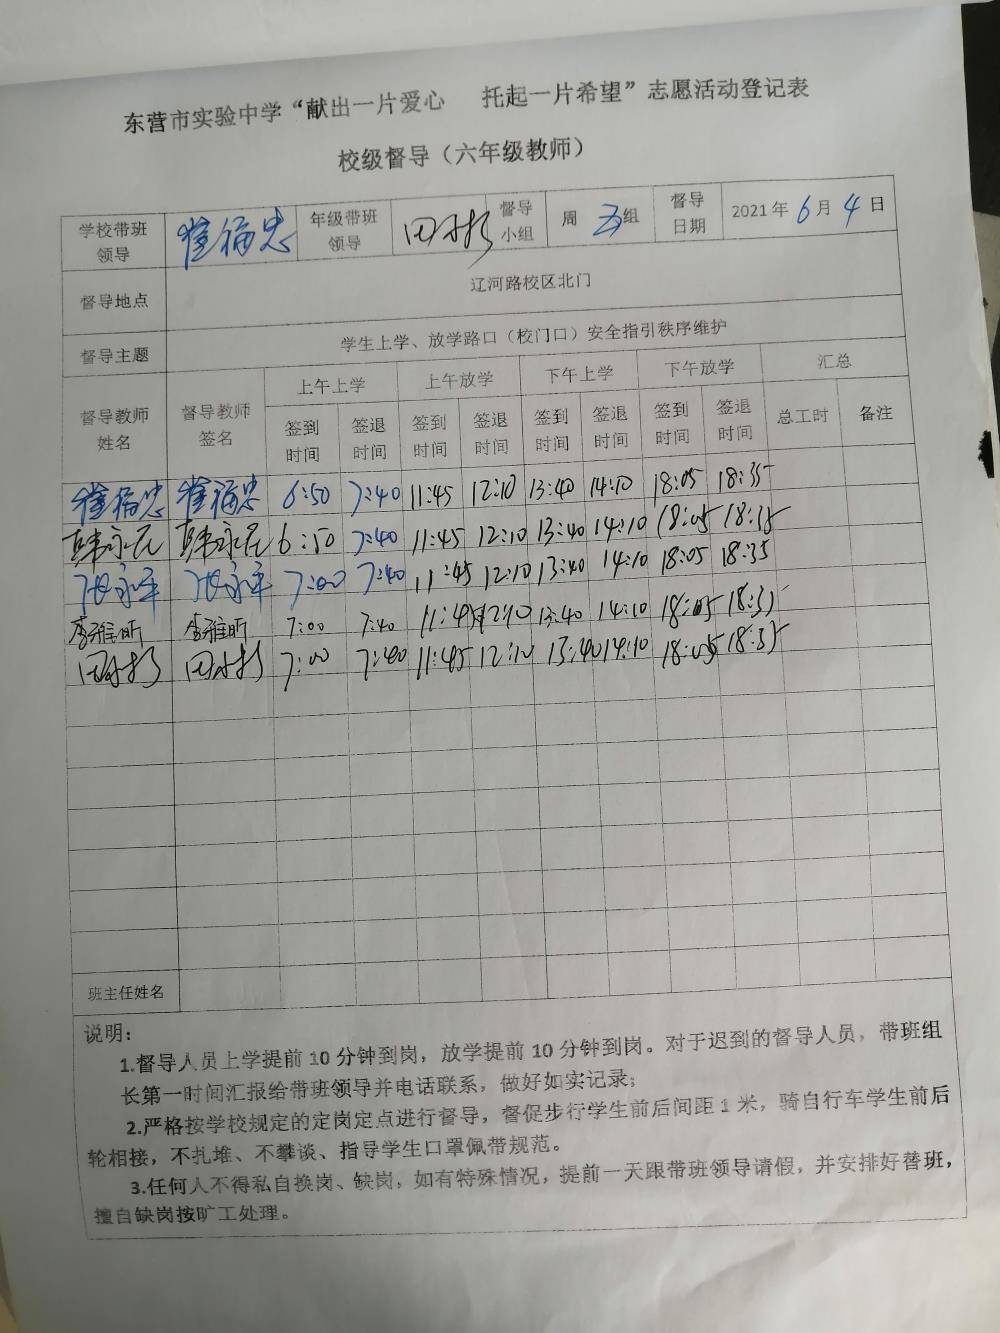 东营市实验中学“献出一片爱心 托起一片希望”志愿活动登记表
校级督导（六年级教师）
学校带班领导 崔福忠 年级带班领导 督导小组 周五组 督导日期 2021年6月4日
督导地点 辽河路校区北门
督导主题 学生上学、放学路口（校门口）安全指引秩序维护
督导教师姓名 督导教师签名 上午上学 上午放学 下午上学 下午放学 汇总
签到时间 签退时间 签到时间 签退时间 签到时间 签退时间 签到时间 签退时间 总工时 备注
崔福忠 崔福忠 6:50 7:40 11:45 12:10 13:40 14:10 18:05 18:35
6:50 7:40 11:45 12:10 13:40 14:10 18:05 18:35
张永军 张永军 7:00 7:40 11:45 12:10 13:40 14:10 18:05 18:35
李雅昕 李雅昕 7:00 7:40 11:45 12:10 13:40 14:10 18:05 18:35
7:00 7:40 11:45 12:10 13:40 14:10 18:05 18:35
班主任姓名
说明：
1.督导人员上学提前10分钟到岗，放学提前10分钟到岗。对于迟到的督导人员，带班组
长第一时间汇报给带班领导并电话联系，做好如实记录；
2.严格按学校规定的定岗定点进行督导，督促步行学生前后间距1米，骑自行车学生前后
轮相接，不扎堆、不攀谈、指导学生口罩佩带规范。
3.任何人不得私自换岗、缺岗，如有特殊情况，提前一天跟带班领导请假，并安排好替班，
擅自缺岗按旷工处理。